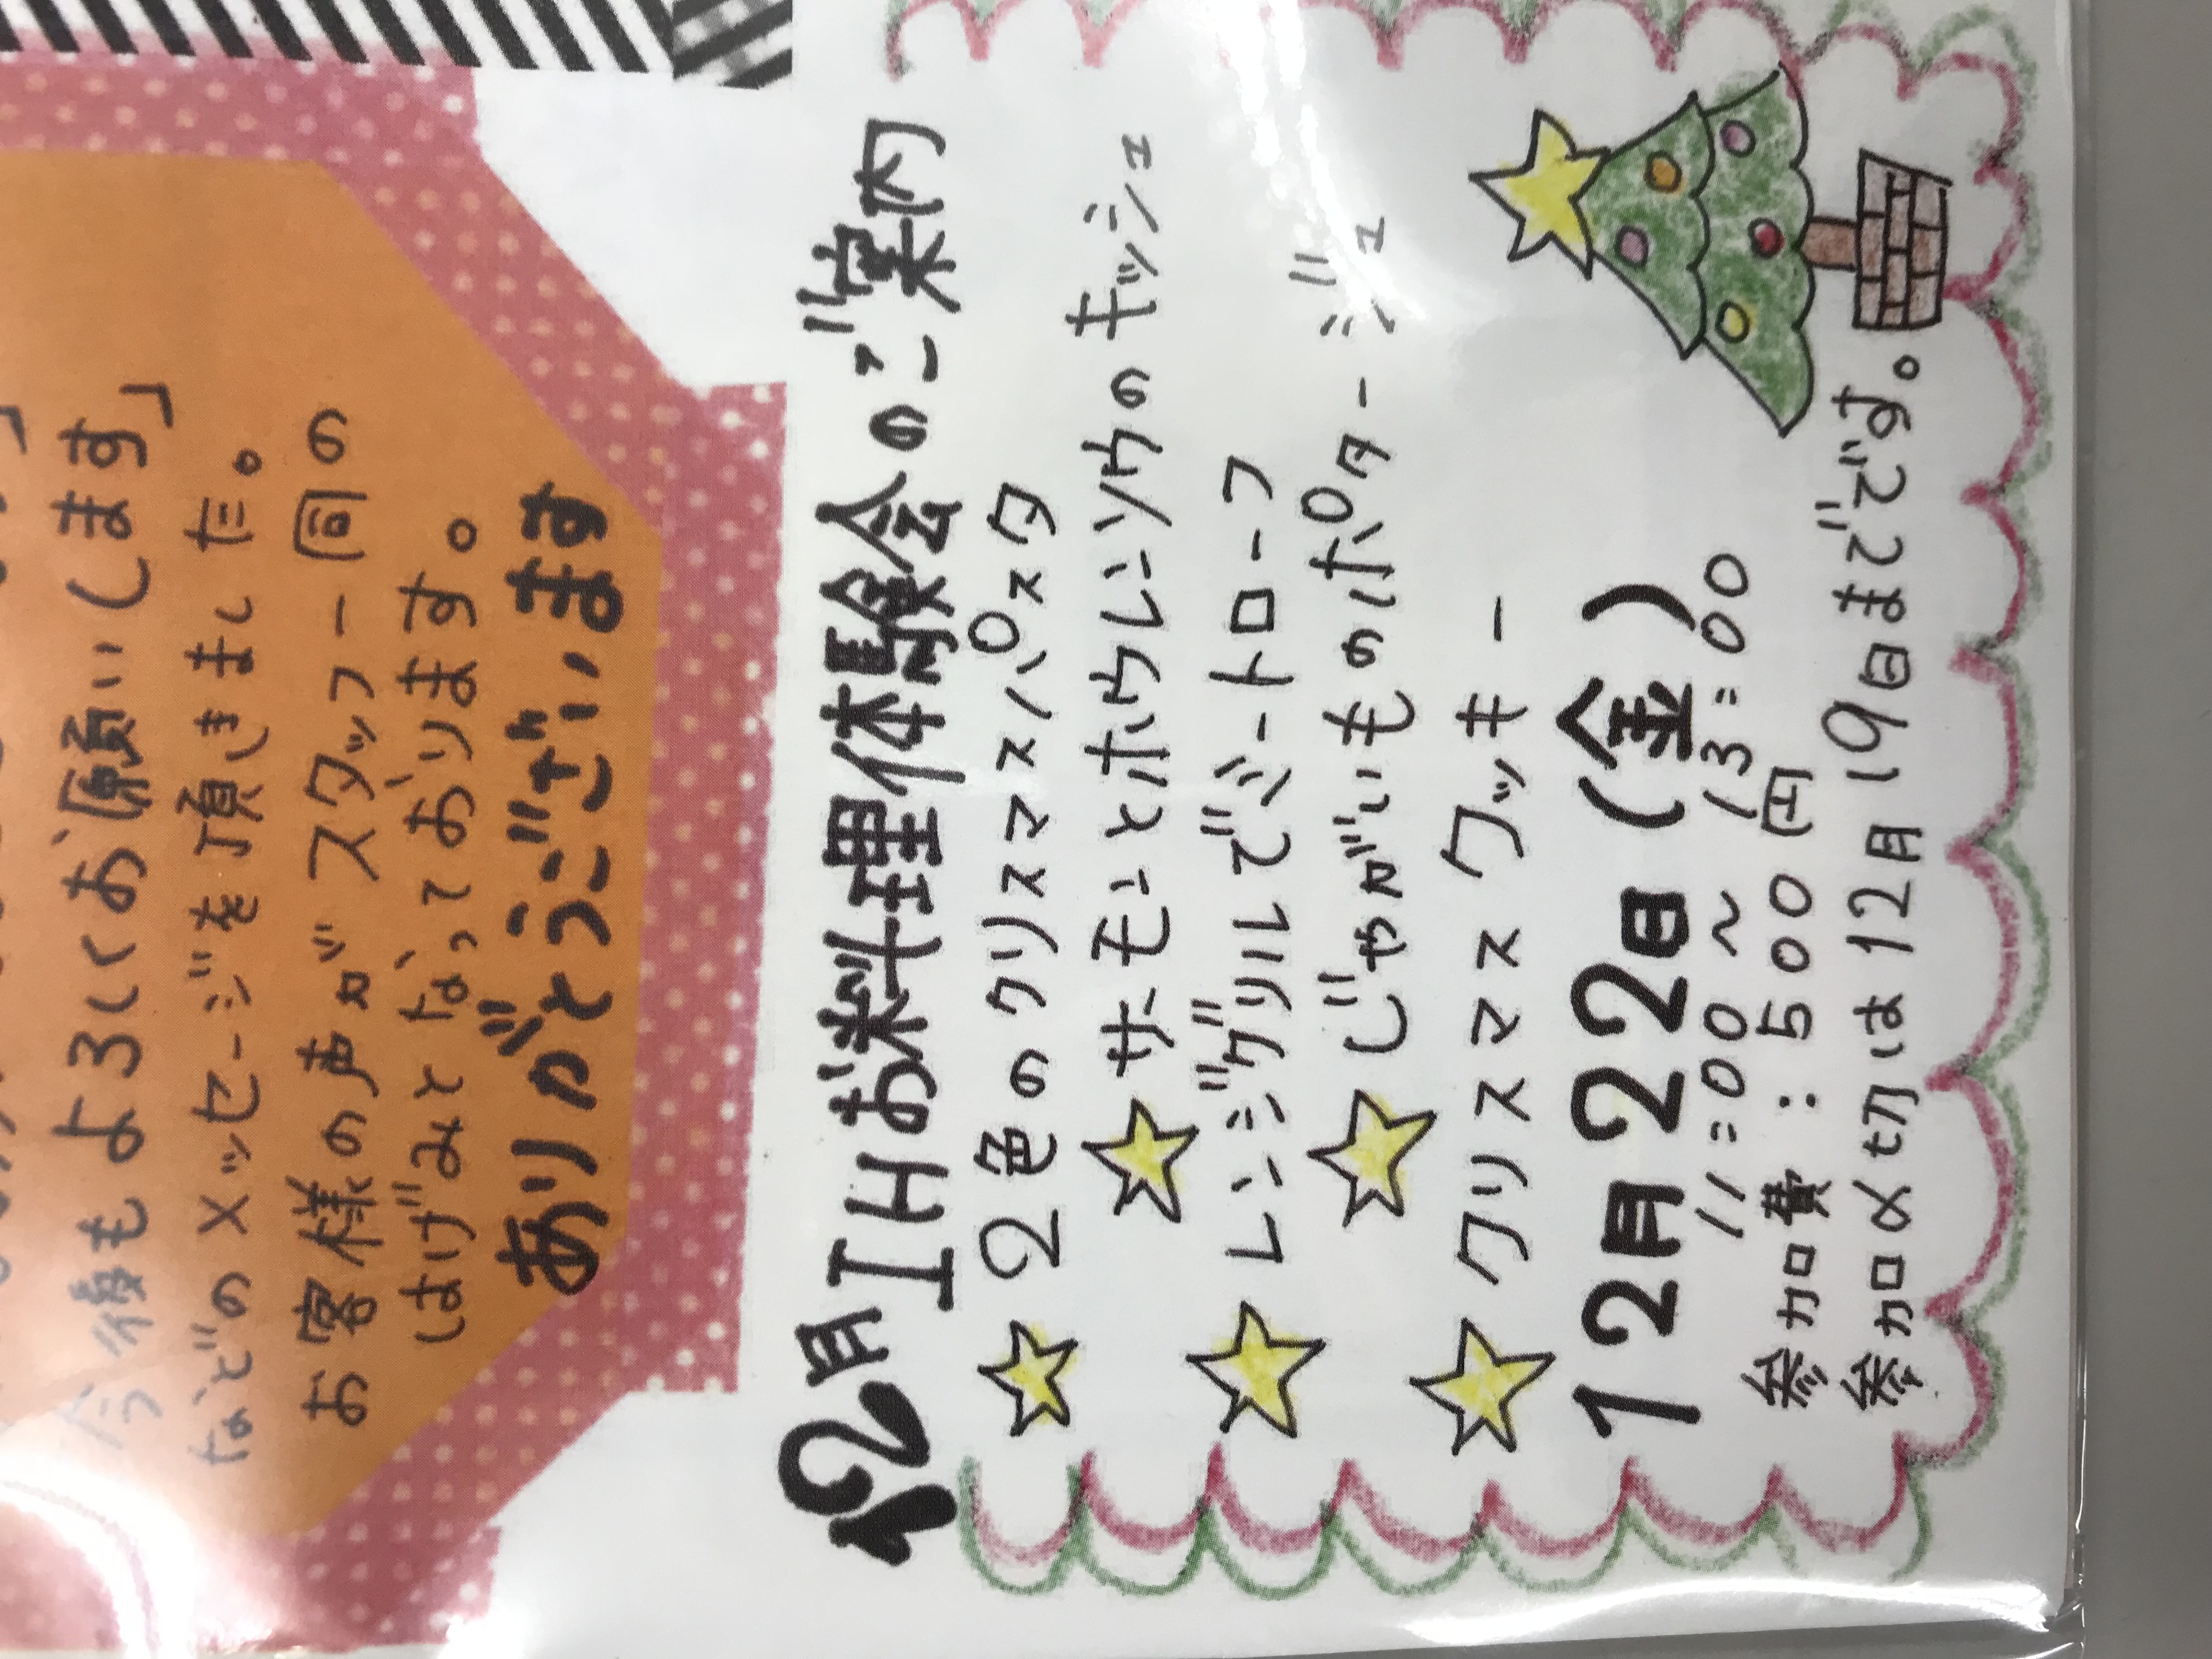 今後もよろしくお願いします」
などのメッセージを頂きました。
お客様の声がスタッフ一同の
はげみとなっております。
ありがとうございます
12月IHお料理体験会のご案内
2色のクリスマスパスタ
サーモンとホウレンソウのキッシュ
レンジグリルでミートローフ
じゃがいものポタージュ
クリスマスクッキー
12月22日(金)
11:00~13:00
参加費:500円
参加〆切は12月19日までです。